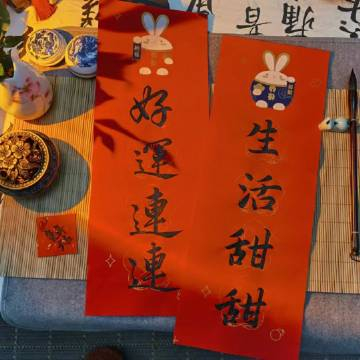 好運連連
生活甜甜